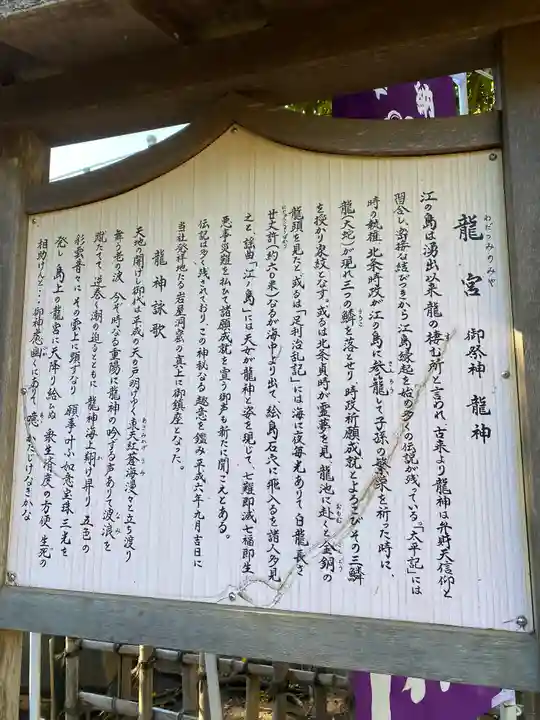 わだつみのみや
龍宮 御祭神 龍神
江の島は湧出以来龍の棲む所と言われ古来より龍神は弁財天信仰と
習合し密接な結びつきから江島縁起を始め多くの伝説が残っている『太平記』には
時の執権北条時政が江の島に参籠して子孫の繁栄を祈った時に、
龍(大蛇)が現れ三つの鱗を落とせり時政祈願成就とよろこびその三鱗
を授かり家紋となす。或るは北条貞時が霊夢を見、龍池に赴くと金銅の
龍頭を見たと或るは「足利治乱記」には海に夜毎光ありて白龍長さ
廿丈許(約六〇米)なるが海中より出て、絵島石穴に飛入るを諸人多見
之と、謡曲「江ノ島」には天女が龍神と姿を現じて、七難即滅七福即生
悪事災難を払ひて諸願成就を宣う御声も新たに聞こえとある。
伝記は多く残されており、この神秘なる趣意を鑑み平成六年九月吉日に
当社発祥地たる岩屋洞窟の真上に御鎮座となった。
龍神詠歌
天地の開けし御代は平成の天の戸明けゆく東天紅蒼海漫々と立ち渡り
舞う老の波 今ぞ時なる重陽に龍神の吟ずる声ありて波浪を
蹴たてて、逆巻く潮の迫るとともに 龍神海を翔け昇り 五色の
彩雲沓々にその雲上に頭すなり 願事叶ふ如意宝珠三光を
発し 島上の龍宮に天降り給らぬ 衆生済度の方便 生死の
相助けんと・・・御神慮幽にありて、噫、かたじけなきかな
納